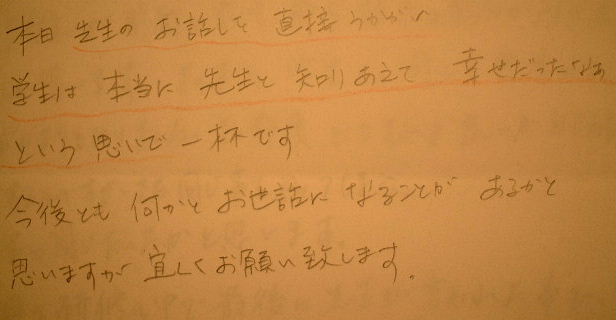 本日 先生の お話しを 直接うかがい
学生は 本当に 先生と 知りあえて 幸せだったなぁ
という 思いで 一杯です
今後とも 何かと お世話に なることが あるかと
思いますが 宜しくお願い致します。